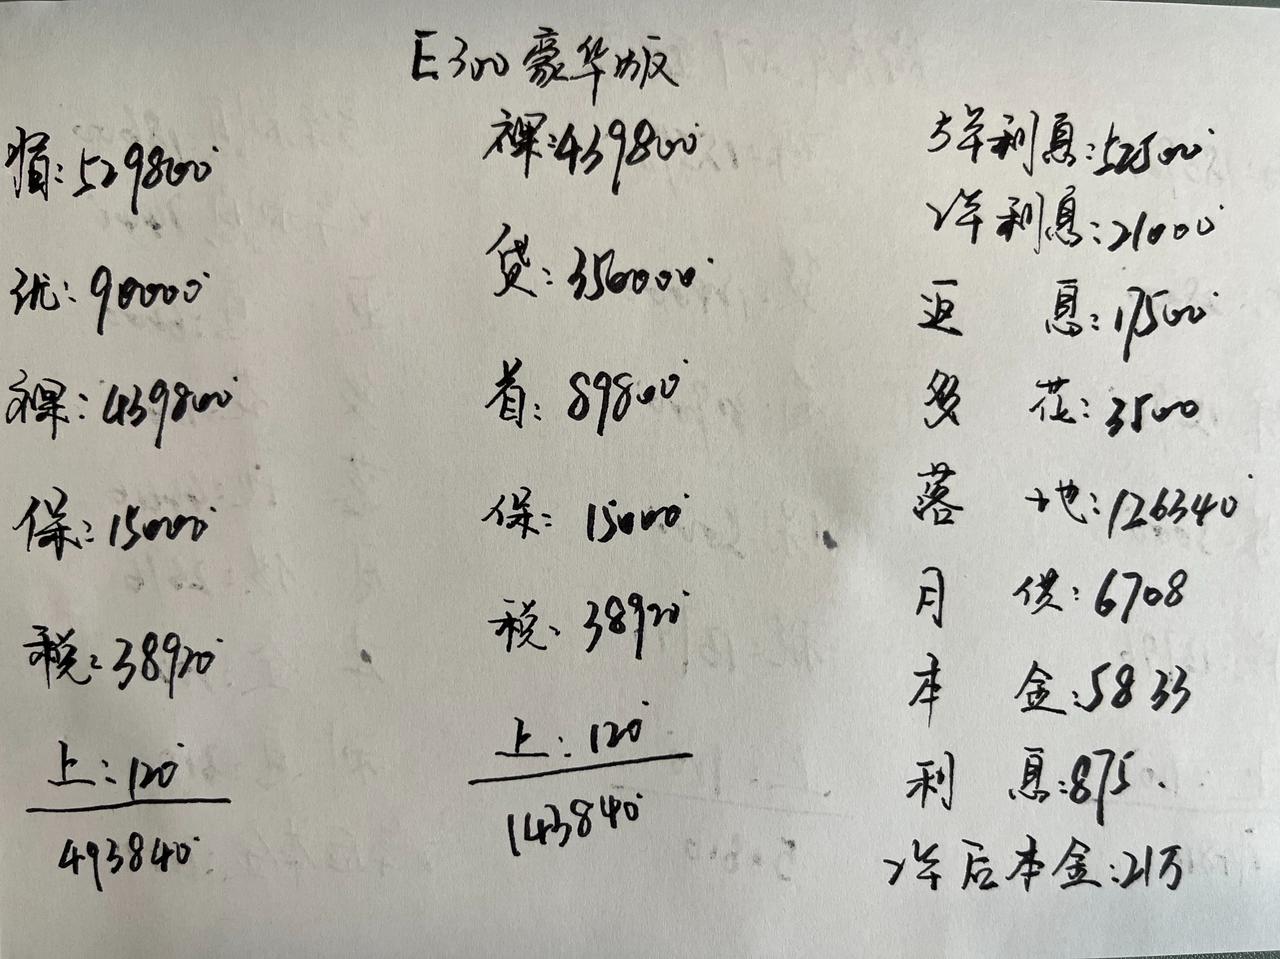 E300豪华版
指:529800
优:90000
裸:439800
保:15000
税:38920
上:120
493840
裸:439800
贷:350000
首:89800
保:15000
税:38920
上:120
143840
5年利息:52500
2年利息:21000
返息:17500
多花:3500
落地:126340
月供:6708
本金:5833
利息:875
2年后本金:21万